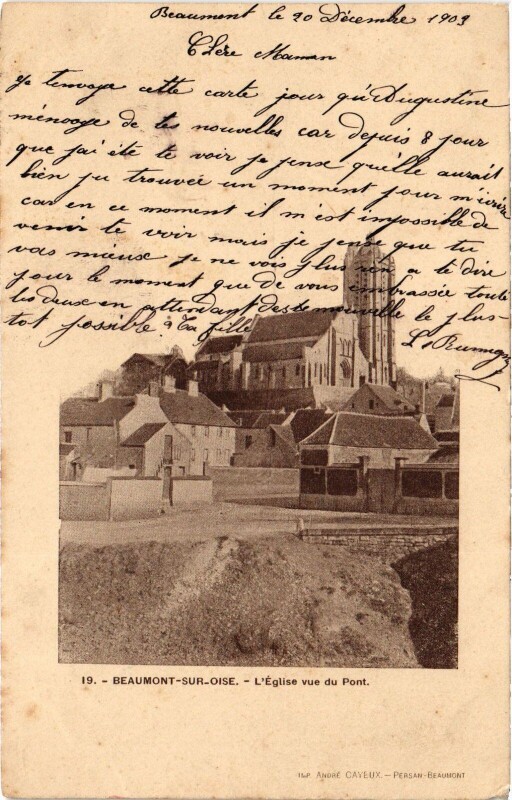 Beaumont le 20 Décembre 1903
Chère Maman
Je tenvoja cette carte jour qu'Augustine
ménvoge de tes nouvelles car depuis 8 jour
que j'ai été te voir je pense quelle aurait
bien pu trouvée un moment pour m'écrire
car en ce moment il m'est impossible de
venir te voir mais je pense que tu
vas mieux je ne vois plus rien a te dire
pour le moment que de vous embrassée toute
les deux en attendant des nouvelle le plus-
tot possible Ta fille
19. - BEAUMONT-SUR-OISE. - L'Église vue du Pont.
IMP. ANDRÉ CAYEUX. — PERSAN-BEAUMONT